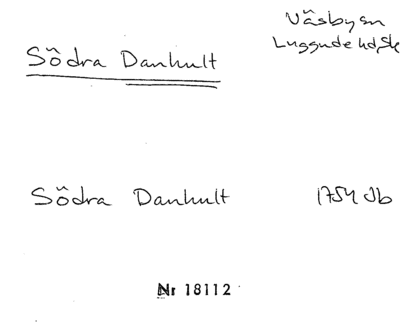 Väsby sn
Luggude hd, Sk
Södra Danhult
Södra Danhult 1754 Jb
Nr 18112